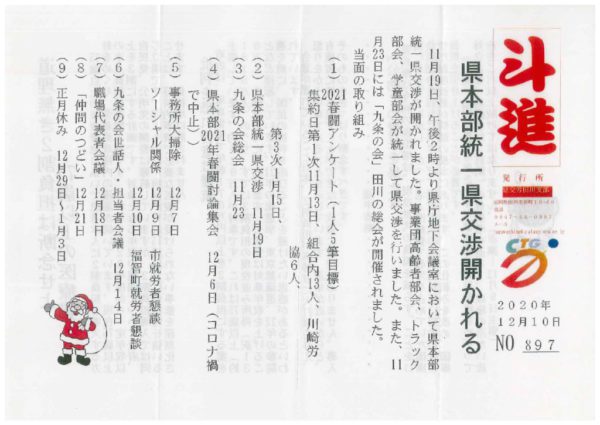 斗進
発行所
CTG
2020年
12月10日
NO 897
県本部統一県交渉開かれる
11月19日、午後2時より県庁地下会議室において県本部
統一県交渉が開かれました。事業団高齢者部会、トラック
部会、学童部会が統一して県交渉を行いました。また、11
月23日には「九条の会」田川の総会が開催されました。
当面の取り組み
(1) 2021春闘アンケート(1人5筆目標)
集約日第1次11月13日、組合内13人、川崎労
協6人、
第3次1月15日、
(2) 県本部統一県交渉 11月19日
(3) 九条の会総会 11月23
(4) 県本部2021年春闘討論集会 12月6日(コロナ禍
で中止))
(5) 事務所大掃除 12月7日
ソーシャル関係 12月9日 市就労者懇談
12月10日 福智町就労者懇談
(6) 九条の会世話人・担当者会議 12月14日
(7) 職場代表者会議 12月18日
(8) 「仲間のつどい」12月21日
(9) 正月休み 12月29日～1月3日